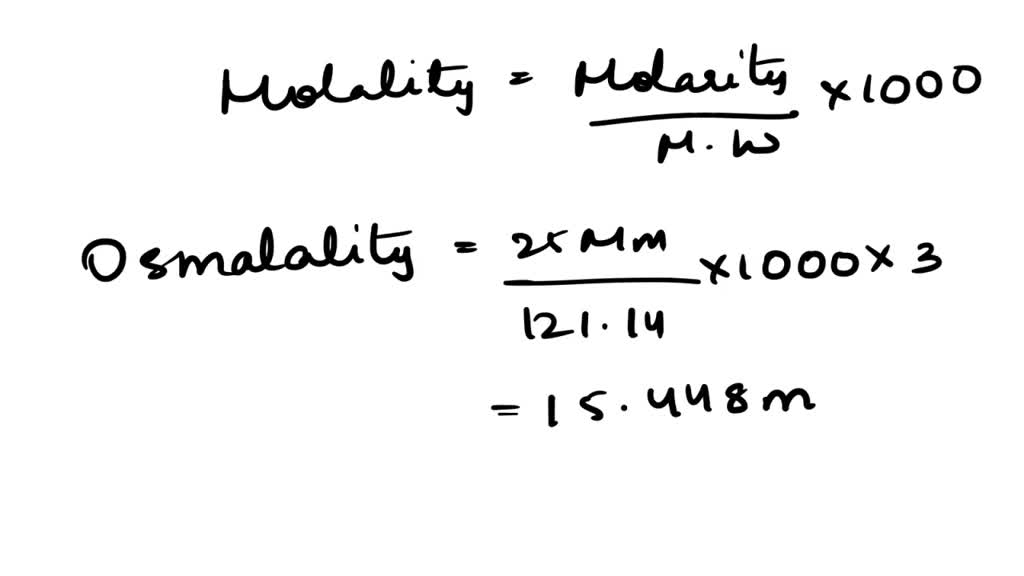 Molality = Molarity / M.W ×1000
Osmalality = 25 Mm / 121.14 ×1000×3
= 15.448m